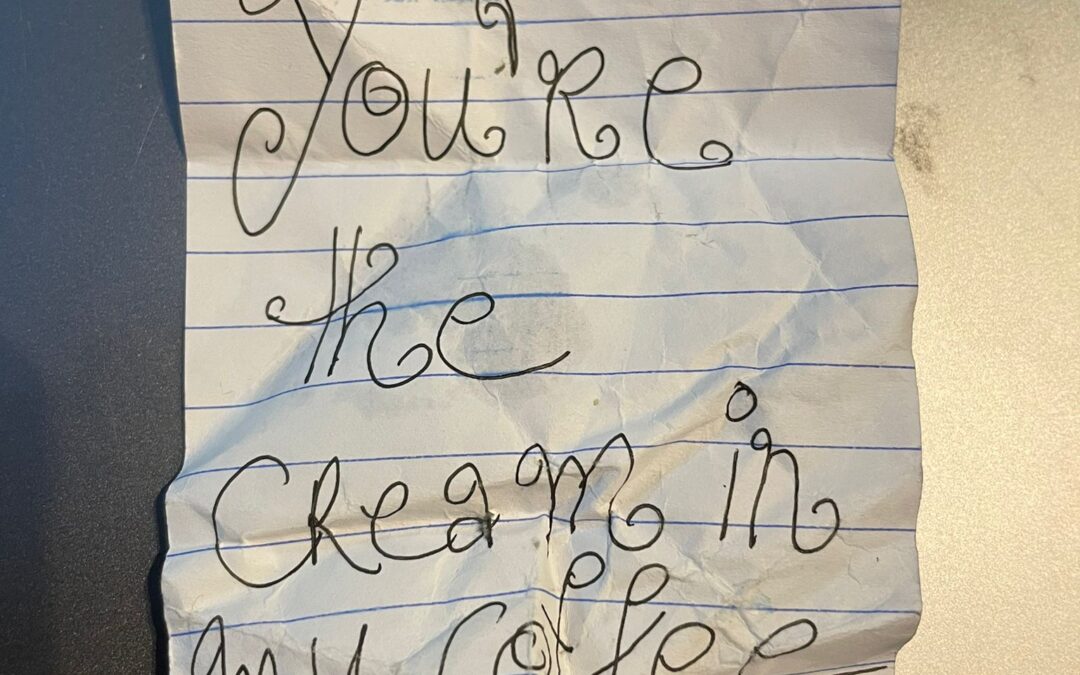 You're
the
cream in
my coffee